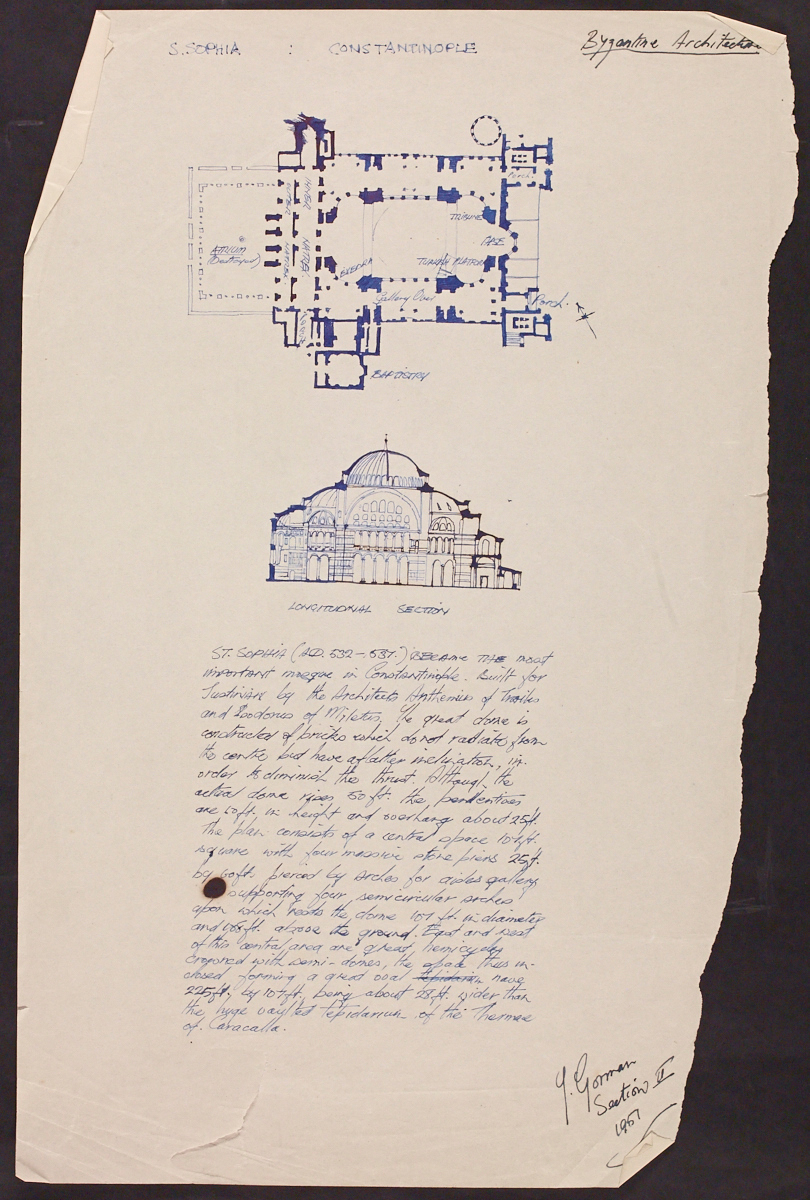 S. SOPHIA : CONSTANTINOPLE
Byzantine Architecture
Porch.
TRIBUNE
APSE
ATRIUM
(Destroyed)
OUTER NARTHEX
INNER NARTHEX
EXEDRA
TURKISH PLATFORM
Gallery Over
Porch.
BAPTISTRY
LONGITUDINAL SECTION
ST. SOPHIA (A.D. 532-537.) BECAME THE most
important mosque in Constantinople. Built for
Justinian by the Architects Anthemius of Tralles
and Isodorus of Miletus, the great dome is
constructed of bricks which do not radiate from
the centre but have a flatter inclination, in
order to diminish the thrust. Although the
actual dome rises 50ft. the pendentives
are 60ft. in height and overhang about 25ft.
The plan consists of a central space 107ft.
square with four massive stone piers 25ft.
by 60ft. pierced by arches for aisles gallery
supporting four semicircular arches
upon which rests the dome 107 ft. in diameter
and ft. above the ground. East and west
of this central area are great hemicycles
crowned with semi-domes, the space thus in-
closed forming a great oval nave
225ft. by 107ft. being about 23ft. wider than
the huge vaulted Tepidarium of the Thermae
of Caracalla.
Gorman
Section II
1951